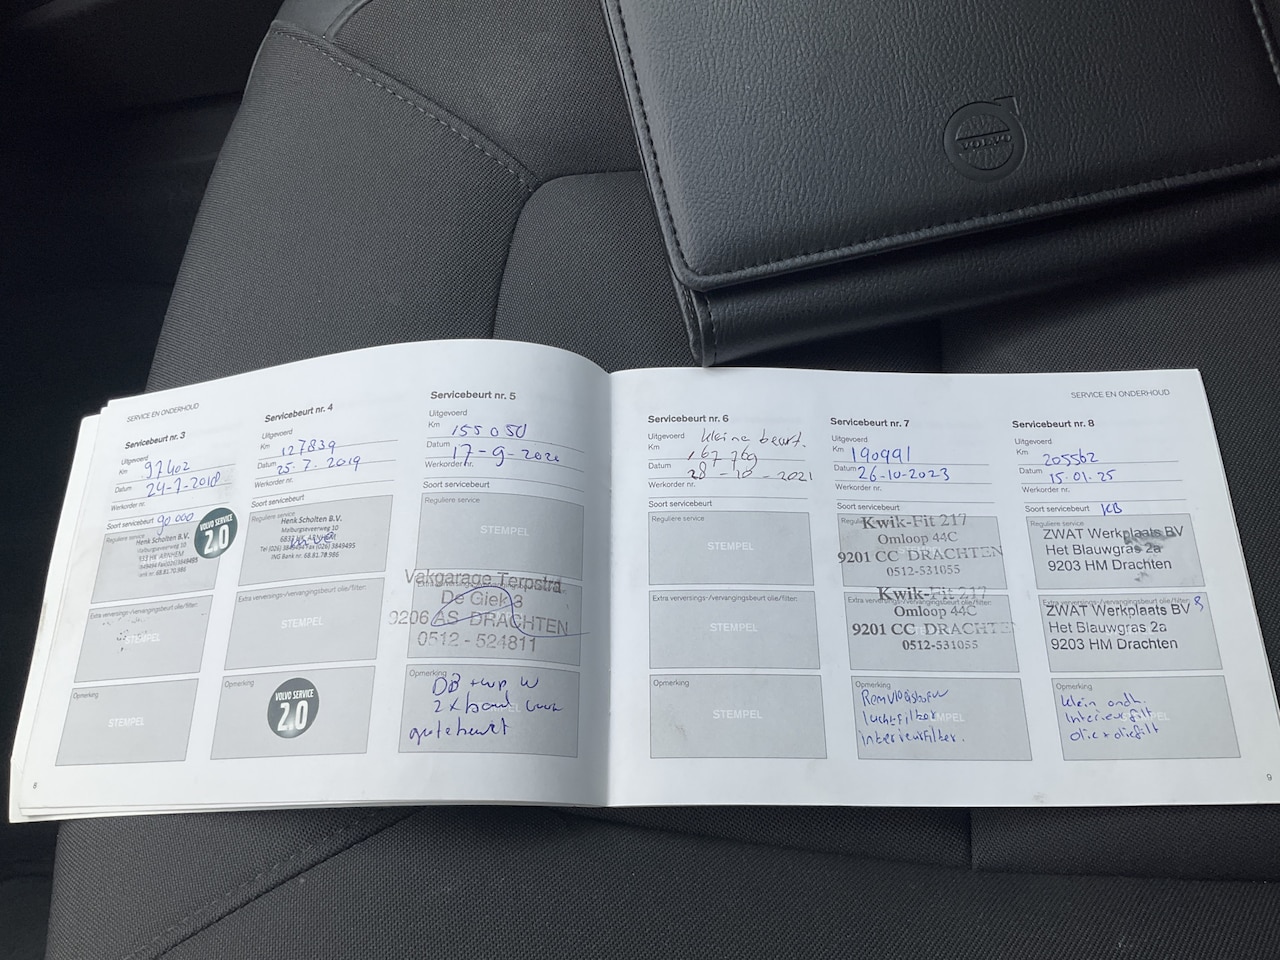 VOLVO
SERVICE EN ONDERHOUD
Servicebeurt nr. 3
Uitgevoerd
Km 92402
Datum 24-7-2018
Werkorder nr.
Soort servicebeurt 90.000
Reguliere service
Henk Scholten B.V.
Malburgseveerweg 30
833 HK ARNHEM
VOLVO SERVICE
2.0
Extra verversings-/vervangingsbeurt olie/filter:
STEMPEL
Opmerking
STEMPEL
8
Servicebeurt nr. 4
Uitgevoerd
Km 127839
Datum 25.7.2019
Werkorder nr.
Soort servicebeurt
Reguliere service
Henk Scholten B.V.
Malburgseveerweg 30
6833 HK ARNHEM
Tel (026) 3849494 Fax (026) 3849495
ING Bank nr. 68.81.70.986
Extra verversings-/vervangingsbeurt olie/filter:
STEMPEL
Opmerking
VOLVO SERVICE
2.0
Servicebeurt nr. 5
Uitgevoerd
Km 155050
Datum 17-9-2020
Werkorder nr.
Soort servicebeurt
Reguliere service
STEMPEL
Vakgarage Terpstra
De Giek 3
9206 AS DRACHTEN
0512 - 524811
Opmerking
DB + wp
2 x band
grote beurt
SERVICE EN ONDERHOUD
Servicebeurt nr. 6
Uitgevoerd kleine beurt.
Km 167769
Datum 28-10-2021
Werkorder nr.
Soort servicebeurt
Reguliere service
STEMPEL
Extra verversings-/vervangingsbeurt olie/filter:
STEMPEL
Opmerking
STEMPEL
Servicebeurt nr. 7
Uitgevoerd
Km 190991
Datum 26-10-2023
Werkorder nr.
Soort servicebeurt
Reguliere service
Kwik-Fit 217
Omloop 44C
9201 CC DRACHTEN
0512-531055
Extra verversings-/vervangingsbeurt olie/filter:
Kwik-Fit 217
Omloop 44C
9201 CC DRACHTEN
0512-531055
Opmerking
Remvloeistof
luchtfilter
interieurfilter.
Servicebeurt nr. 8
Uitgevoerd
Km 205562
Datum 15.01.25
Werkorder nr.
Soort servicebeurt KB
Reguliere service
ZWAT Werkplaats BV
Het Blauwgras 2a
9203 HM Drachten
Extra verversings-/vervangingsbeurt olie/filter:
ZWAT Werkplaats BV
Het Blauwgras 2a
9203 HM Drachten
Opmerking
klein ondh.
Interieurfilt
olie + oliefilt
9